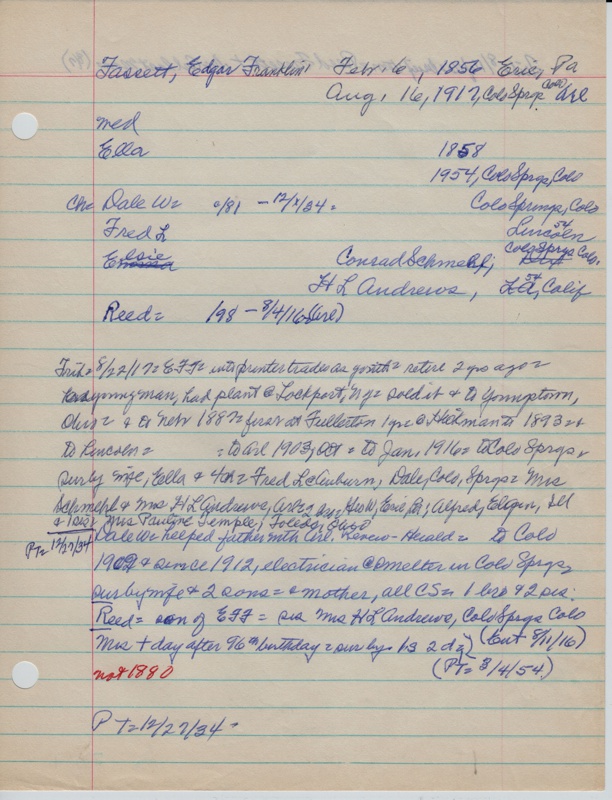 Fassett, Edgar Franklin Feb. 6, 1856 Erie, Pa
Aug. 16, 1917, Colo Sprgs Colo
med
Ella 1858
1954, Colo Sprgs, Colo
Ch= Dale W= /81 - 12/ /34= Colo Springs, Colo
Fred L Lincoln
54
Elsie Conrad Schmehl; Colo Sprgs Colo,
H L Andrews, LA, Calif
54
Reed= 198 - 8/4/16=
8/22/17= EFF= into printer trade as youth= retire 2 yrs ago=
young man, had plant @ Lockport, NY= sold it & to Youngstown,
Ohio= & to Nebr 1887= first at Fullerton 1 yr= @ Hickman to 1893=+
to Lincoln= = to Arl 1903, Oct = to Jan, 1916= to Colo Sprgs,
sur by wife, Ella & 4 ch= Fred L, Dale, Colo, Sprgs= Mrs
Schmehl & Mrs H L Andrews, Geo W, Erie, Pa; Alfred, Elgin, Ill
& 1 sis Mrs Pauline Temple, Toledo, Ohio
PT= 12/27/34 Dale W= helped father with Arl. Review-Herald= to Colo
1909 & since 1912, electrician @ smelter in Colo Sprgs=
sur by wife & 2 sons= & mother, all CS= 1 bro & 2 sis.
Reed= son of EFF = sis Mrs H L Andrews, Colo Sprgs Colo
Mrs + day after 96th birthday= sur by 1 s 2 d= (Ent 8/11/16)
not 1880 (PT= 3/4/54)
PT= 12/27/34=